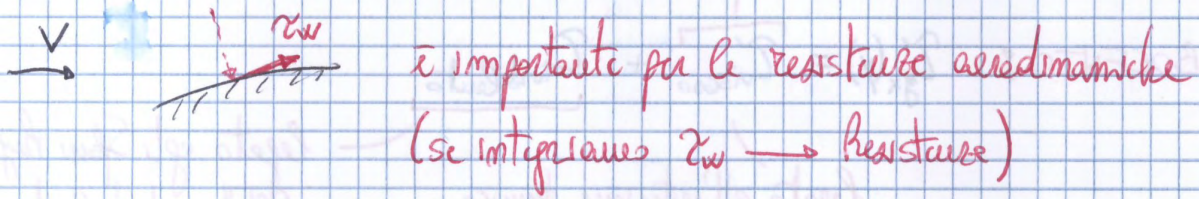 V
τw
è importante per le resistenze aerodinamiche
(se integriamo τw → Resistenze)